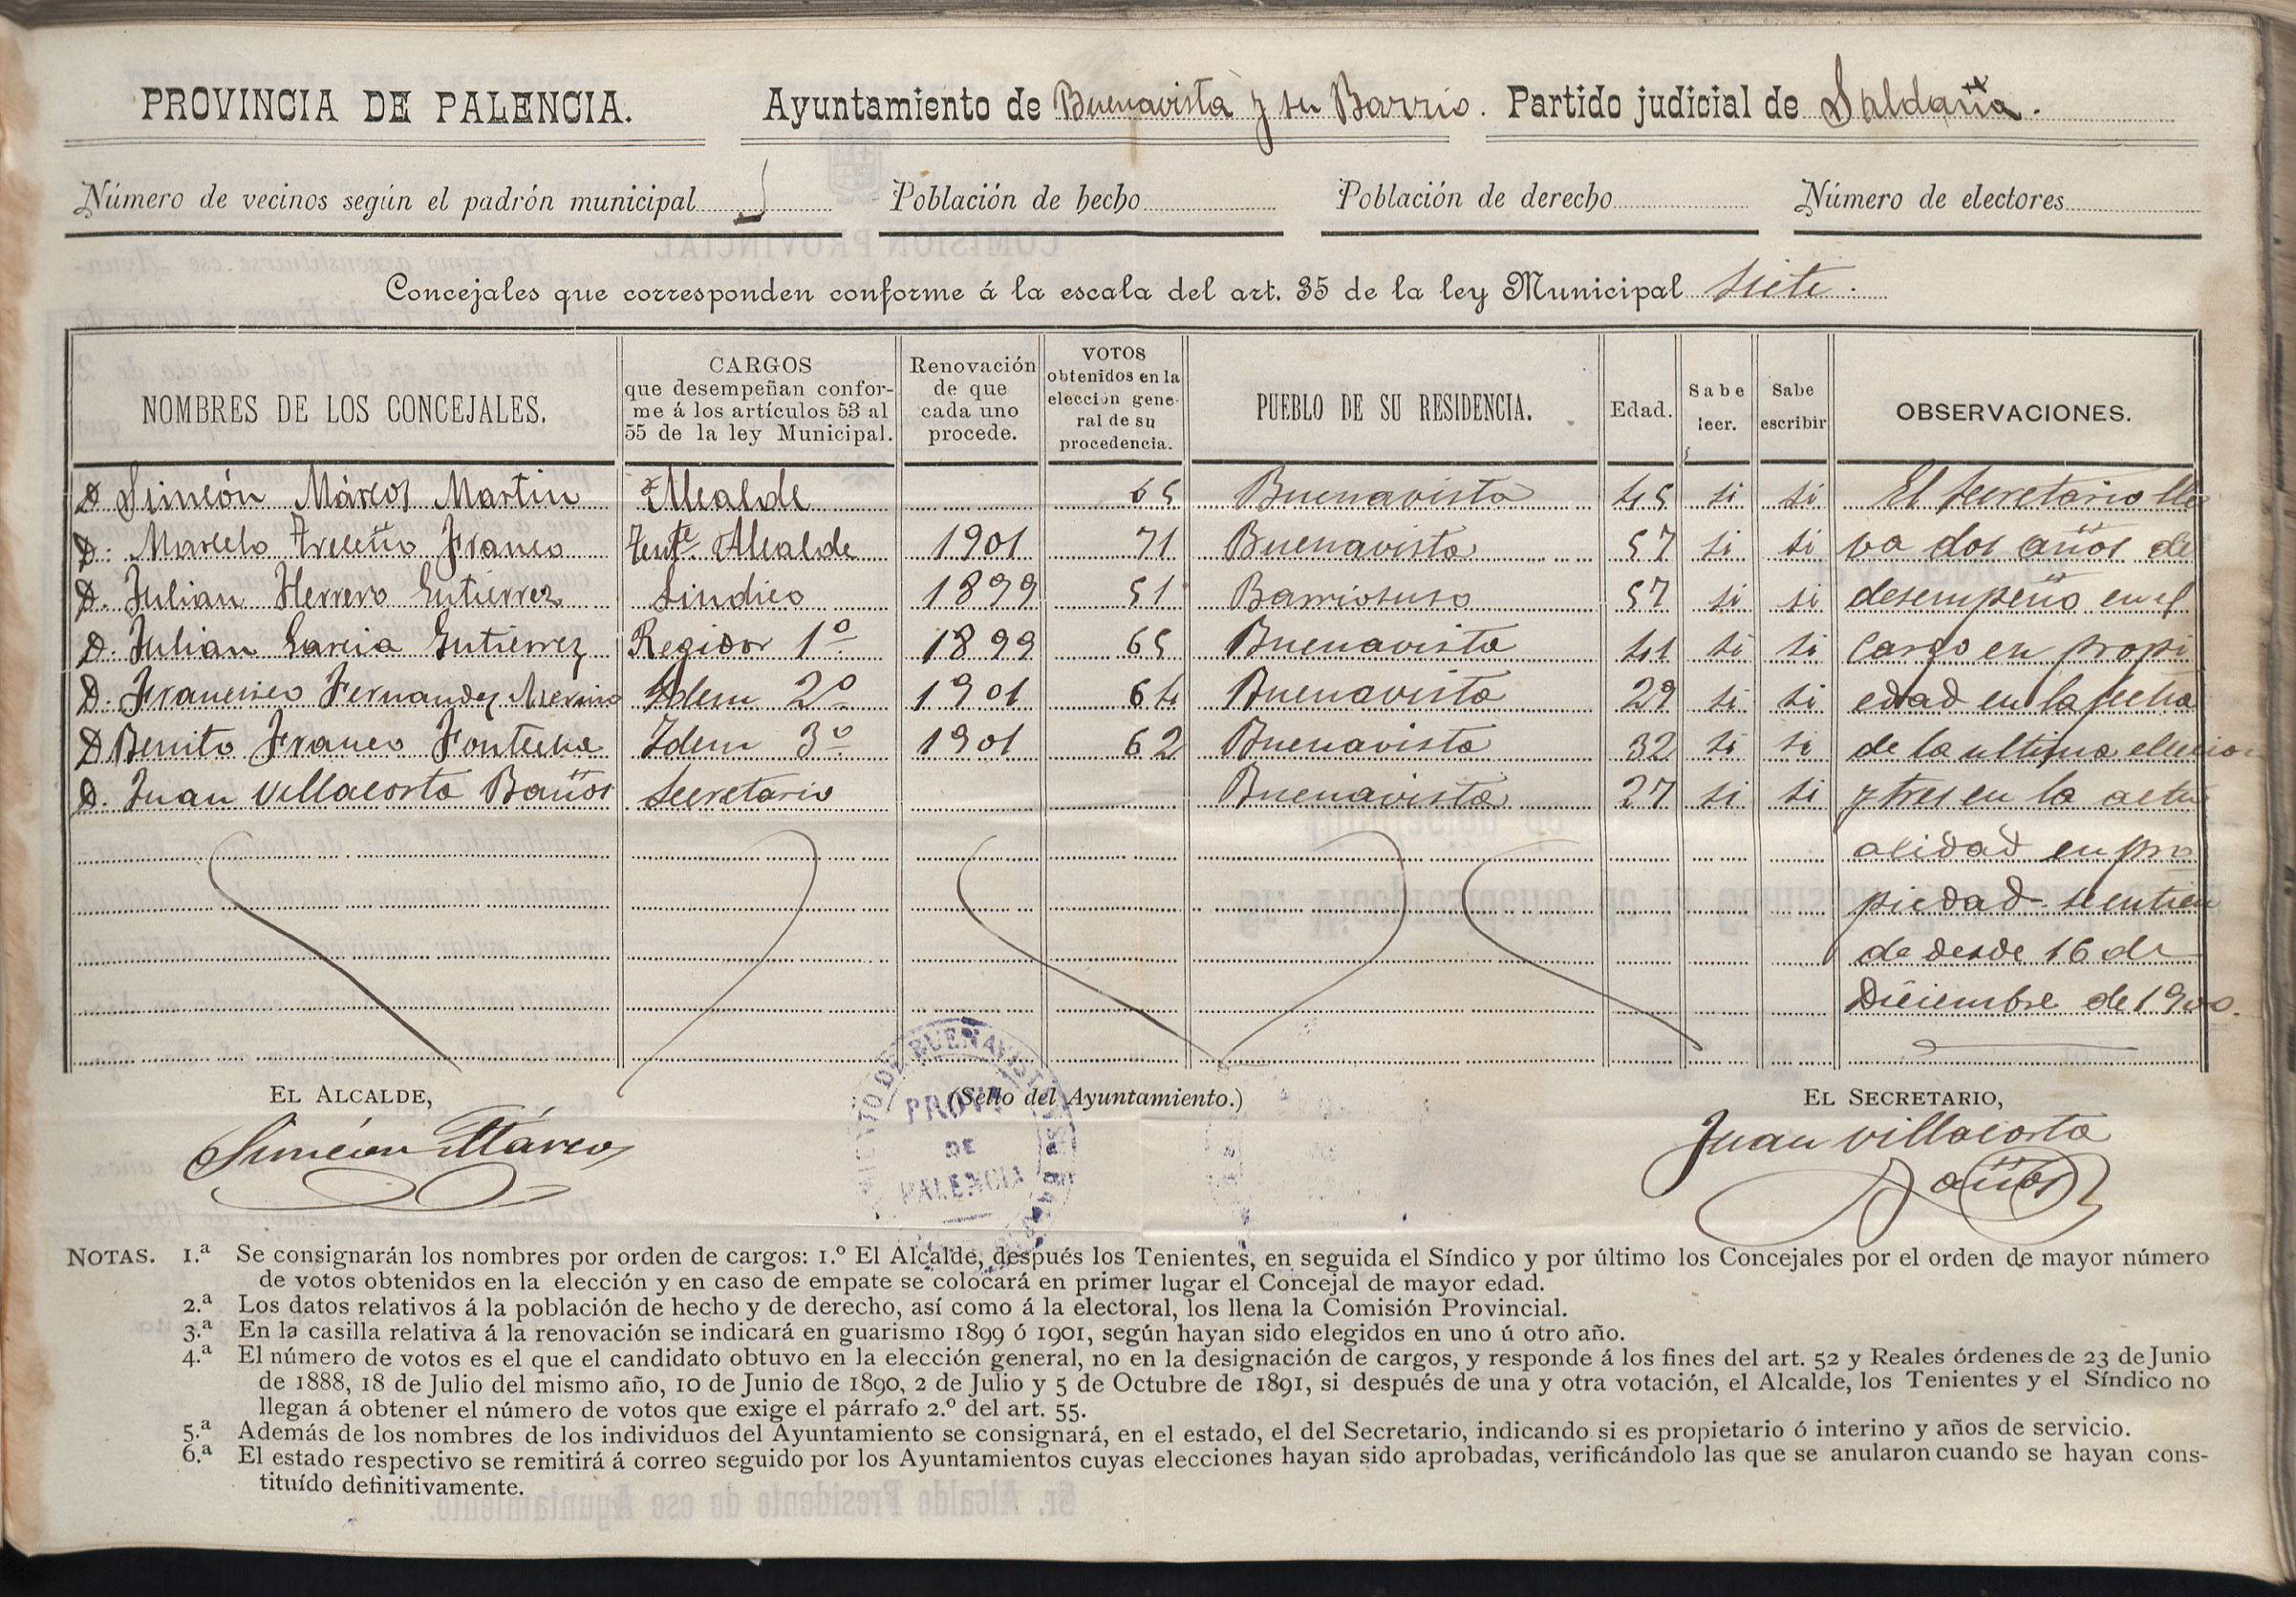 PROVINCIA DE PALENCIA. Ayuntamiento de Buenavista y su Barrio. Partido judicial de Saldaña.
Número de vecinos según el padrón municipal Población de hecho Población de derecho Número de electores
Concejales que corresponden conforme á la escala del art. 35 de la ley Municipal siete.
NOMBRES DE LOS CONCEJALES.
CARGOS
que desempeñan confor-
me á los artículos 53 al
55 de la ley Municipal.
Renovación
de que
cada uno
procede.
VOTOS
obtenidos en la
elección gene-
ral de su
procedencia.
PUEBLO DE SU RESIDENCIA.
Edad.
Sabe
leer.
Sabe
escribir
OBSERVACIONES.
D Simeón Márcos Martin Alcalde 65 Buenavista 45 si si El Secretario lle
D. Marcelo Treceño Franco Tente Alcalde 1901 71 Buenavista 57 si si va dos años de
D. Julian Herrero Gutierrez Sindico 1899 51 Barriosuso 57 si si desempeño en el
D. Julian Garcia Gutierrez Regidor 1º 1899 65 Buenavista 41 si si cargo en propi
D. Francisco Fernandez Merino Idem 2º 1901 64 Buenavista 29 si si edad en la fecha
D Benito Franco Fontecha Idem 3º 1901 62 Buenavista 32 si si de la ultima eleccion
D. Juan Villacorta Baños Secretario Buenavista 27 si si y tres en la actu
alidad en pro
piedad se entien
de desde 16 de
Diciembre de 1900.
EL ALCALDE, (Sello del Ayuntamiento.) EL SECRETARIO,
Simeon Márcos
Juan Villacorta
Baños
DE BUENAVISTA
PROVA
DE
PALENCIA
NOTAS. 1.ª Se consignarán los nombres por orden de cargos: 1.º El Alcalde, después los Tenientes, en seguida el Síndico y por último los Concejales por el orden de mayor número
de votos obtenidos en la elección y en caso de empate se colocará en primer lugar el Concejal de mayor edad.
2.ª Los datos relativos á la población de hecho y de derecho, así como á la electoral, los llena la Comisión Provincial.
3.ª En la casilla relativa á la renovación se indicará en guarismo 1899 ó 1901, según hayan sido elegidos en uno ú otro año.
4.ª El número de votos es el que el candidato obtuvo en la elección general, no en la designación de cargos, y responde á los fines del art. 52 y Reales órdenes de 23 de Junio
de 1888, 18 de Julio del mismo año, 10 de Junio de 1890, 2 de Julio y 5 de Octubre de 1891, si después de una y otra votación, el Alcalde, los Tenientes y el Síndico no
llegan á obtener el número de votos que exige el párrafo 2.º del art. 55.
5.ª Además de los nombres de los individuos del Ayuntamiento se consignará, en el estado, el del Secretario, indicando si es propietario ó interino y años de servicio.
6.ª El estado respectivo se remitirá á correo seguido por los Ayuntamientos cuyas elecciones hayan sido aprobadas, verificándolo las que se anularon cuando se hayan cons-
tituído definitivamente.